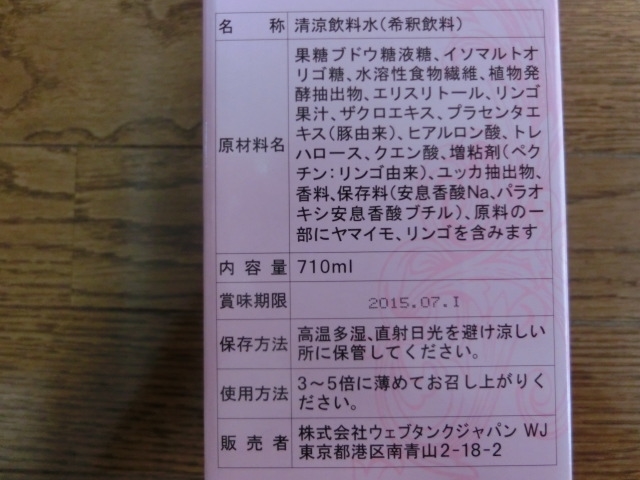 名　称 清涼飲料水(希釈飲料)
原材料名 果糖ブドウ糖液糖、イソマルトオ
リゴ糖、水溶性食物繊維、植物発
酵抽出物、エリスリトール、リンゴ
果汁、ザクロエキス、プラセンタエ
キス(豚由来)、ヒアルロン酸、トレ
ハロース、クエン酸、増粘剤(ペク
チン:リンゴ由来)、ユッカ抽出物、
香料、保存料(安息香酸Na、パラオ
キシ安息香酸ブチル)、原料の一
部にヤマイモ、リンゴを含みます
内容量 710ml
賞味期限 2015.07.I
保存方法 高温多湿、直射日光を避け涼しい
所に保管してください。
使用方法 3〜5倍に薄めてお召し上がりく
ださい。
販売者 株式会社ウェブタンクジャパン WJ
東京都港区南青山2-18-2